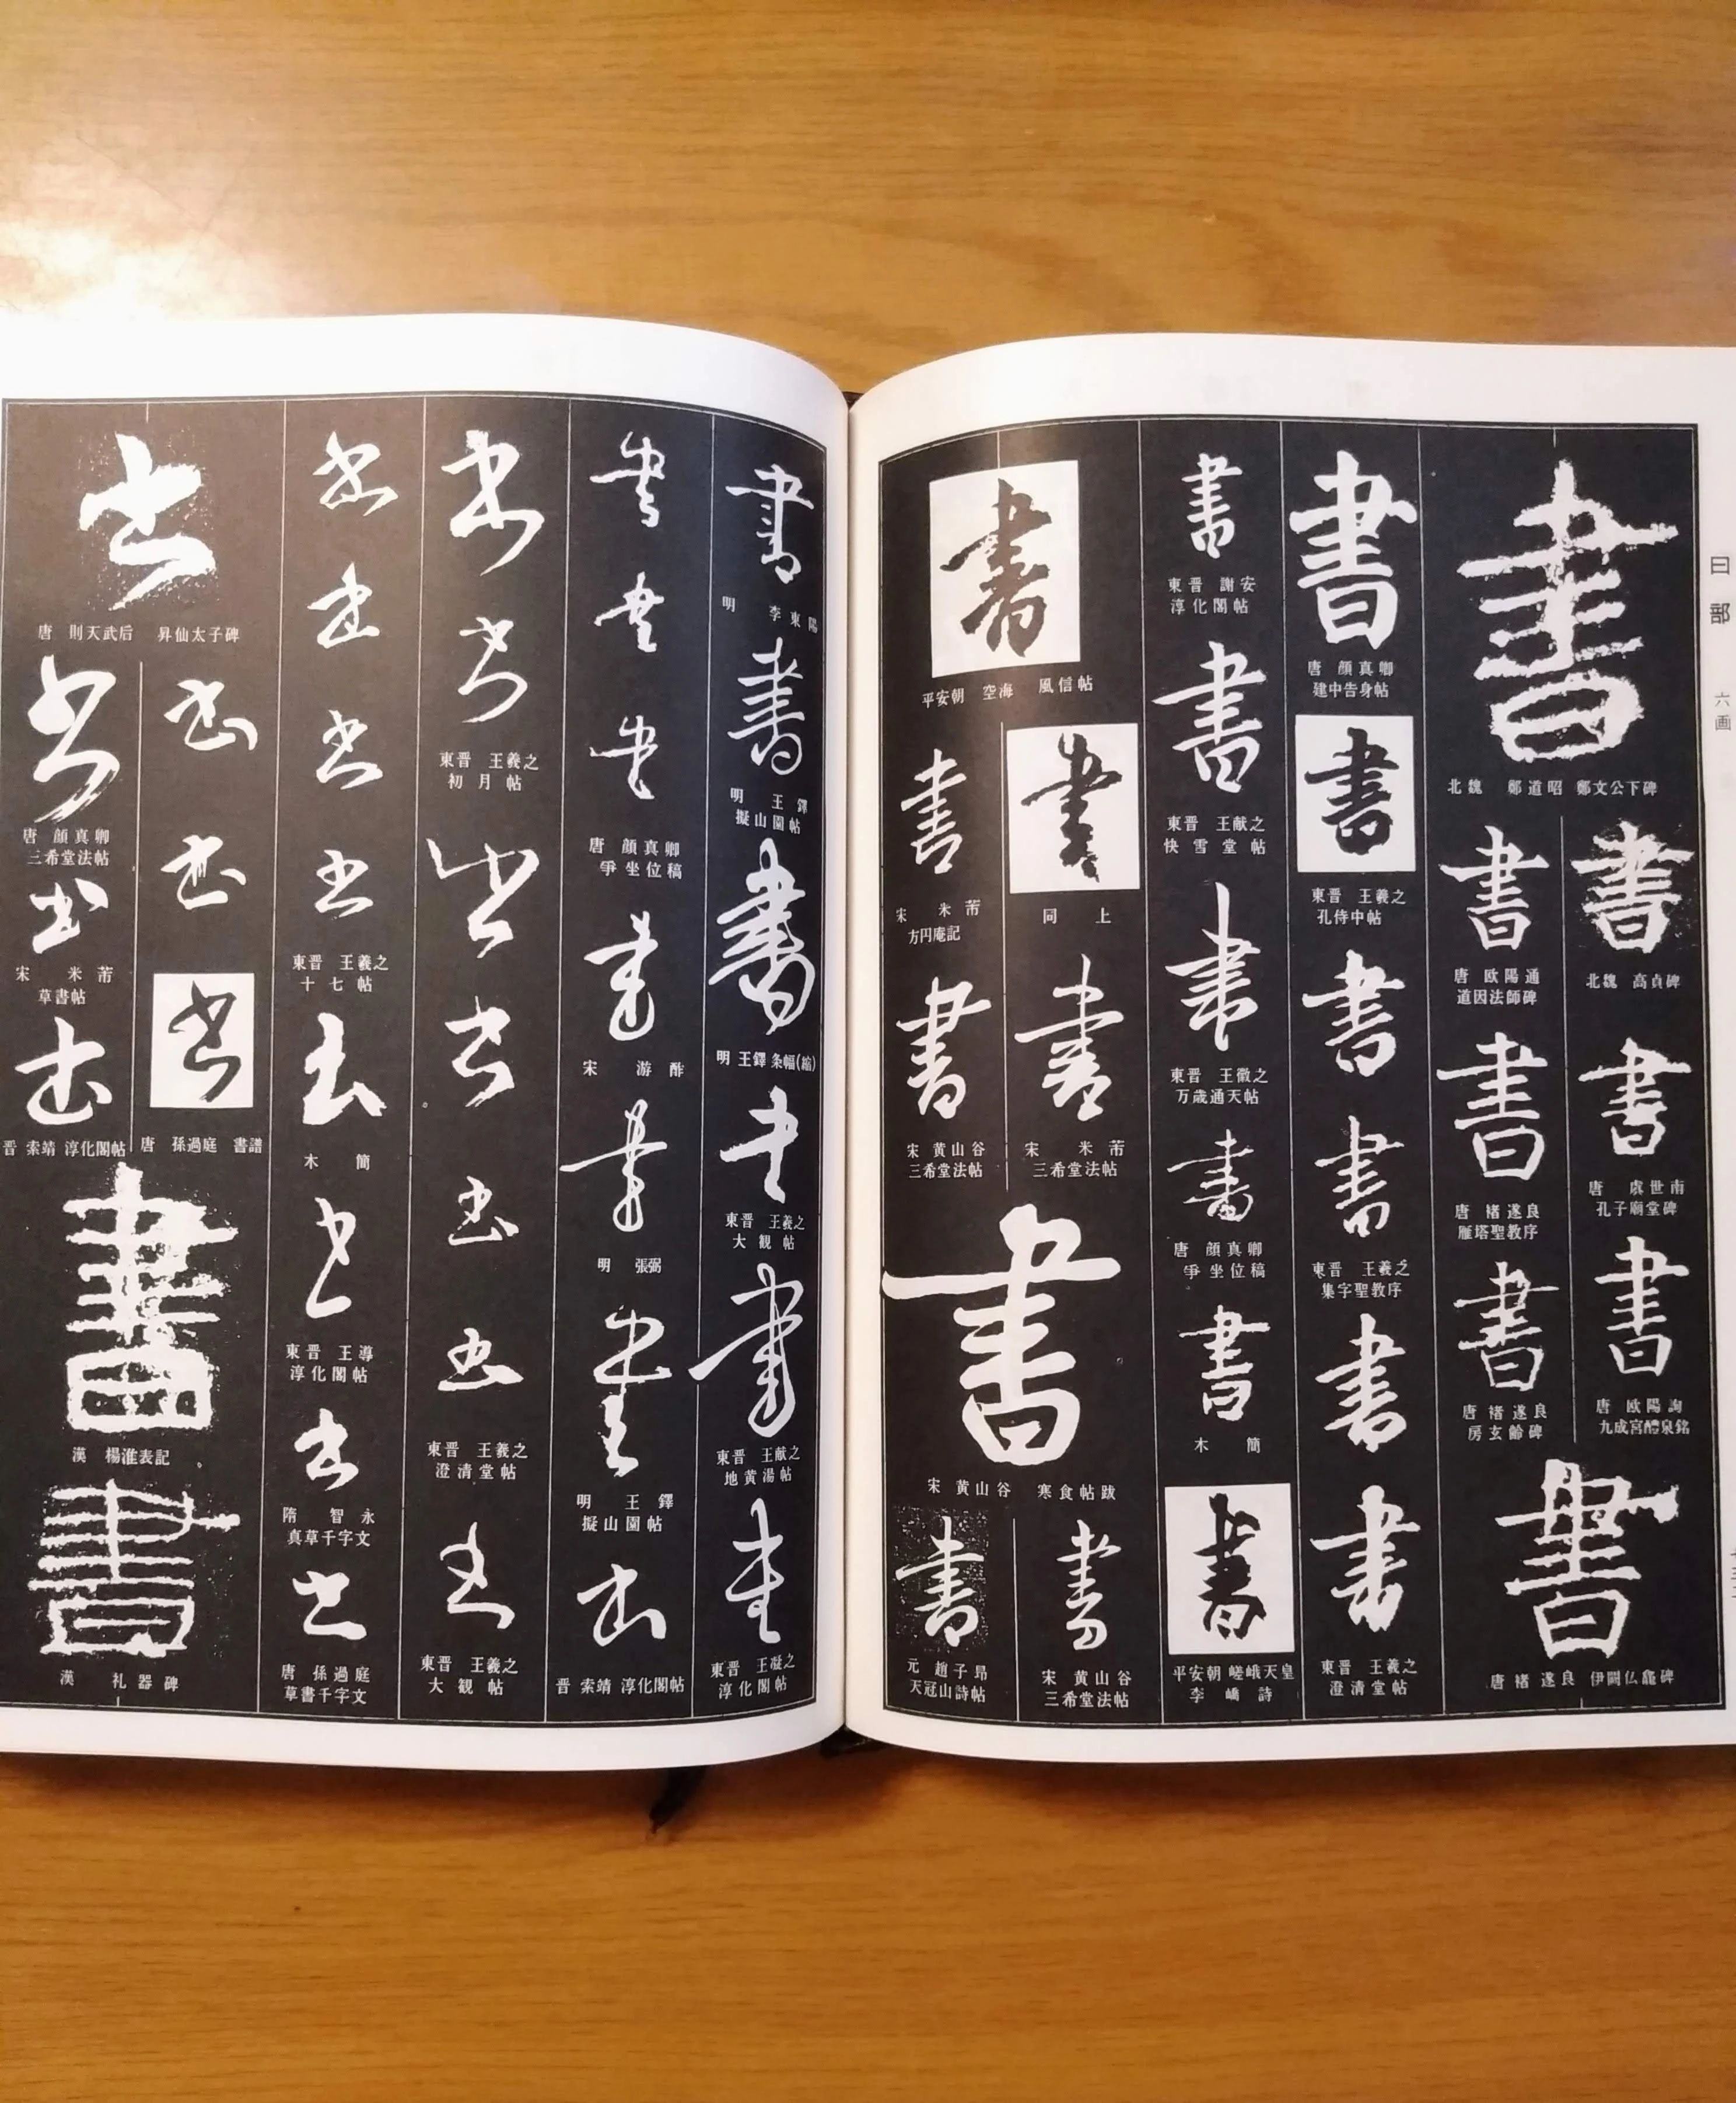 曰部
六画
書
北魏 鄭道昭 鄭文公下碑
書
北魏 高貞碑
書
唐 虞世南
孔子廟堂碑
書
唐 欧陽詢
九成宮醴泉銘
書
唐 欧陽通
道因法師碑
書
唐 褚遂良
雁塔聖教序
書
唐 褚遂良
房玄齢碑
書
唐 褚遂良 伊闕仏龕碑
書
唐 顔真卿
建中告身帖
書
東晋 王羲之
孔侍中帖
書
書
東晋 王羲之
集字聖教序
書
書
東晋 王羲之
澄清堂帖
書
東晋 謝安
淳化閣帖
書
東晋 王献之
快雪堂帖
書
東晋 王徽之
万歳通天帖
書
唐 顔真卿
争坐位稿
書
木簡
書
平安朝 嵯峨天皇
李嶠詩
書
平安朝 空海 風信帖
書
同上
書
宋 米芾
三希堂法帖
書
宋 米芾
方円庵記
書
宋 黄山谷
三希堂法帖
書
宋 黄山谷 寒食帖跋
書
宋 黄山谷
三希堂法帖
書
元 趙子昂
天冠山詩帖
書
明 李東陽
書
明 王鐸
擬山園帖
書
明 王鐸 条幅(縮)
書
東晋 王羲之
大観帖
書
東晋 王献之
地黄湯帖
書
東晋 王凝之
淳化閣帖
書
書
書
唐 顔真卿
争坐位稿
書
宋 游酢
書
明 張弼
書
書
明 王鐸
擬山園帖
書
晋 索靖 淳化閣帖
書
書
東晋 王羲之
初月帖
書
書
書
書
東晋 王羲之
澄清堂帖
書
東晋 王羲之
大観帖
書
書
書
書
東晋 王羲之
十七帖
書
木簡
書
東晋 王導
淳化閣帖
書
隋 智永
真草千字文
書
唐 孫過庭
草書千字文
書
唐 則天武后 昇仙太子碑
書
書
書
唐 孫過庭 書譜
書
唐 顔真卿
三希堂法帖
書
宋 米芾
草書帖
書
晋 索靖 淳化閣帖
書
漢 楊淮表記
書
漢 礼器碑